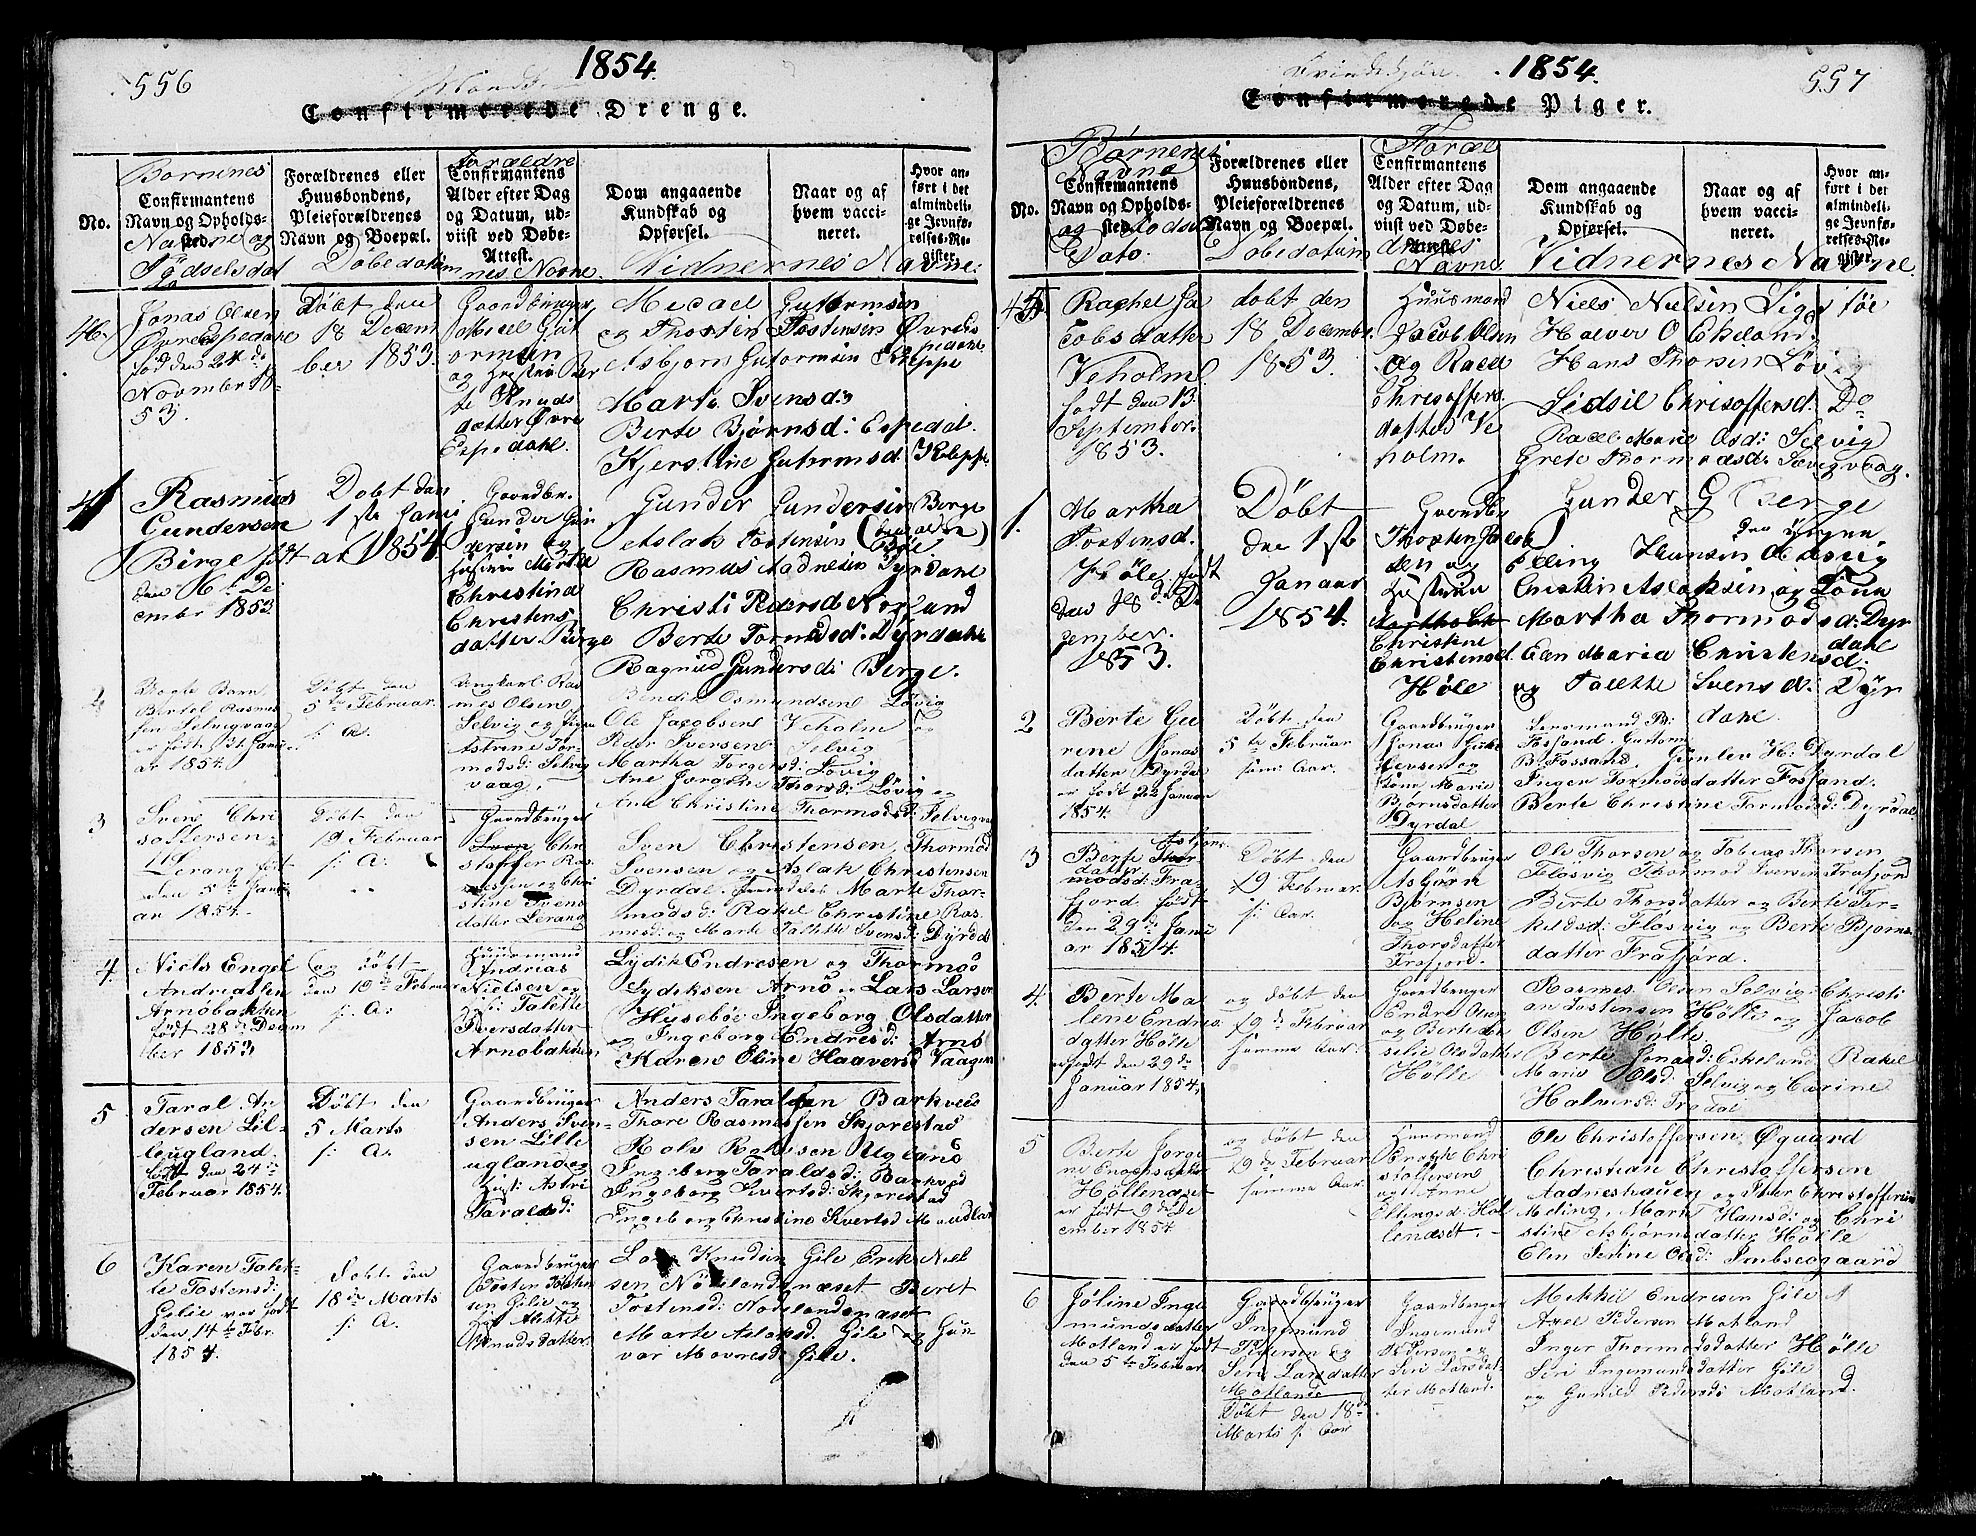 556
1854.
Confirmerede Drenge.
No.
Børnenes
Confirmantens
Navn og Opholds-
sted.
Navne og
Fødselsdat
Forældrenes eller
Huusbondens,
Pleieforældrenes
Navn og Boepæl.
Døbedatum
Forældre
Confirmantens
Alder efter Dag
og Datum, ud-
viist ved Døbe-
Attest.
nes Navne.
Dom angaaende
Kundskab og
Opførsel.
Naar og af
hvem vacci-
neret.
Hvor an-
ført i det
almindeli-
ge Jevnfø-
relses-Re-
gister.
Vidnernes Navne.
46.
Jonas Olsen
Øvre Espedahl
fød den 24 de
November 18-
53.
Døbt den
18 Decem
ber 1853.
Gaardbruger
Micael Gut
ormsen
og Hustru Ber
te Knuds
datter Øvre
Espedahl.
Micael Guttormsen
og Thosten Tostensen Øvre Es
pedahl
Asbjørn Gutormsen Kleppe
Marte Svensd:
Berte Bjørnsd: Espedal.
Kjerstine Guttormsd: Kleppe
1
Rasmus
Gundersen
Berge født
den 16 de De
cember 1853
Døbt den
1 ste Janu
ar 1854
Gaardbr.
Gunder Gun
dersen og
Hustru Marthe
Christina
Christens
datter Berge
Gunder Gundersen Berge
Aslak Tostensen
Rasmus Aadnesen Dyrdahl
Christi Pedersd Nogland
Berte Tormodsd: Dyrdahl
Ragnild Gundersd: Berge.
2
Uægte Barn
Bertel Rasmus
sen Selvigvaag
er født 31. Janu
ar 1854.
Døbt den
5 te Februar.
s. A.
Ungkarl Ras
mus Olsen
Selvig og Pigen
Astrine Tor-
modsd: Selvig
vaag.
Bendik Osmundsen Løvig
Ole Jacobsen Veholm og
Peder Iversen Selvig
Martha Torgersd: Løvig
Ane Thorsd: Løvig og
Ane Christine Thormodsd: Selvig
3
Svend Chri
soffersen
Lerang født
den 5 te Janu
ar 1854.
Døbt den
19 Februar
s. A.
Gaardbruger
Chri
stoffer Ras
mussen og Chri
stine Svens
datter Lerang
Sven Christensen, Thormod
Svensen og Aslak Christensen
Dyrdal. Marte Thor-
modsd: Rakel Christine Ras
musd: og Marte Talette Svensd: Dyrdal
4
Niels Engel
Andreassen
Arnøbakken
født 28 de Decem
ber 1853
og Døbt
den 19 de Februar
s. A.
Huusmand
Andreas
Nielsen og
Talette
Iversdatter
Arnøbakken
Lydik Endresen og Thormod
Lydiksen Arnø. Lars Larsen
Husebøe Ingeborg Olsdatter
og Ingeborg Endresd: Arnø
Karen Oline Haaversd Vaagen
5
Taral An
dersen Lil-
leugland.
født den 24 de
Februar 1854.
Døbt den
5 Marts
s. A.
Gaardbruger
Anders Iven-
sen Lille
ugland og
Hust: Astri
Taralsd:
Anders Taraldsen Barkved
Thore Rasmussen Skjørestad
Rolv Rolvsen Ugland
Ingeborg Taraldsd: Barkved
Ingeborg Sivertsd: Skjorestad
Ingeborg Christine Sivertsd Maudland
6
Karen Talet-
te Tostensd:
Gilie var født
den 14 te Febr.
1854.
Døbt den
18 de Marts
s. A.
Gaardbruger
Tosten Tosten
sen Gilie og
Hus Alette
Knudsdatter.
Knudsen Gile Erik Niel
sen Nødlandnæset Beret
Tostensd: Nødlandsnæset
Marte Aslaksd. Gile og Gun
vor Mavnesd: Gile.
Qvindekjøn.
1854.
557
Confirmerede Piger.
No.
Børnenes
Navne
Confirmantens
Navn og Opholds-
sted.
og Fødsels
Dato.
Forældrenes eller
Huusbondens,
Pleieforældrenes
Navn og Boepæl.
Døbedatum
Foræl
Confirmantens
Alder efter Dag
og Datum, ud-
viist ved Døbe-
Attest.
drenes
Navne
Dom angaaende
Kundskab og
Opførsel.
Naar og af
hvem vacci-
neret.
Hvor an-
ført i det
almindeli-
ge Jevnfø-
relses-Re-
gister.
Vidnernes Navne.
45
Rachel Ja
cobsdatter
Veholm.
født den 13
September.
1853.
døbt den
18 December
1853.
Huusmand
Jacob Olsen
og Rael
Chrisoffers
datter Ve
holm.
Niels Nielsen
Halvor O Ekeland
Hans Thorsen Løvig
Sidsil Chrisoffersd. Do-
Racel Marie Olsd: Selvig
Grete Thormodsd. Sævigvaag.
1.
Martha
Tostensd.
Høle født
den 18 de De
zember.
1853.
Døbt
den 1 ste
Januar
1854.
Gaardbr
Thosten Jacob
sen og
Hustru
Christine
Christensd
Høle
Gunder G Berge
den Yngere.
Elling Hansen Adsvig
Christen Aslaksen og Lone
Martha Thormodsd: Dyr
dahl
Elen Maria Christensd:
og Talette Svensd: Dyr
dahl.
2
Berte Gu
rine Jonas
datter Dyrdal
er født den Januar
1854.
Døbt den
5 te Februar
samme Aar.
Gaardbruger
Jonas
og
Lone Marie
Bjørnsdatter
Dyrdal
Fossand. Guttorm
B. Fossand. Gunlev H. Dyrdal
Inger Tormodsdatter Fossand.
Berte Christine Tormodsd: Dyrdal
3
Berte Asbjørns
datter Fra-
fjord født
den 29 de Janu
ar 1854.
Døbt den
19 Februar.
s. Aar.
Gaardbruger
Asbjørn
Bjørnsen
og Heline
Thorsdatter
Frafjord.
Ole Thorsen og Tobias Thorsen
Fløsvig Thormod Iversen Frafjord
Berte Thorsdatter og Berte Tor-
kildsd: Fløsvig og Berte Bjørns
datter Frafjord.
4
Berte Ma
lene Endres
datter Hølle
er født den 29 de
Januar 1854.
og døbt den
19 de Februar
samme Aar.
Gaardbruger
Endre Olsen
og Berte
Olsdatter
Hølle
Rasmus Olsen Selvig: Christi
an Tostensen Hølle og Jacob
Olsen Hølle
Berte Jonasd: Eskeland Rakel
Marie Olsd: Selvig og Carine
Halversd: Frødal
5
Berte Jorgi
ne Enoksdatter
Høllendset
er født 9 de De
cember 1854
og døbt den
19 de Februar
samme Aar.
Huusmand
Enok Chri
stoffersen
og Anne
Ellingsd: Høl
lendset.
Ole Christoffersen, Øgaard
Christian Christoffersen
Aadneshauen og Peter Christoffersen
Meling. Marte Hansd: og Chri
stine Asbjørnsdatter Hølle
Elen Serine Olsd: Imbseogaard
6
Joline Inge
mundsdatter
Motland er født
den 5 te Februar
Gaardbruger
Ingemund
Pedersen og
Seri Larsdatter
Motland
Døbt den 18 de
Marts s. Aar
Gaardbruger
Ingemund
Pedersen og
Seri Larsdat-
ter Motland.
Mekkel Endresen Gile
Axel Pedersen Motland
Inger Thormodsdatter Hølle
Seri Ingemundsdatter Gile
og Gunild Pedersd: Motland.